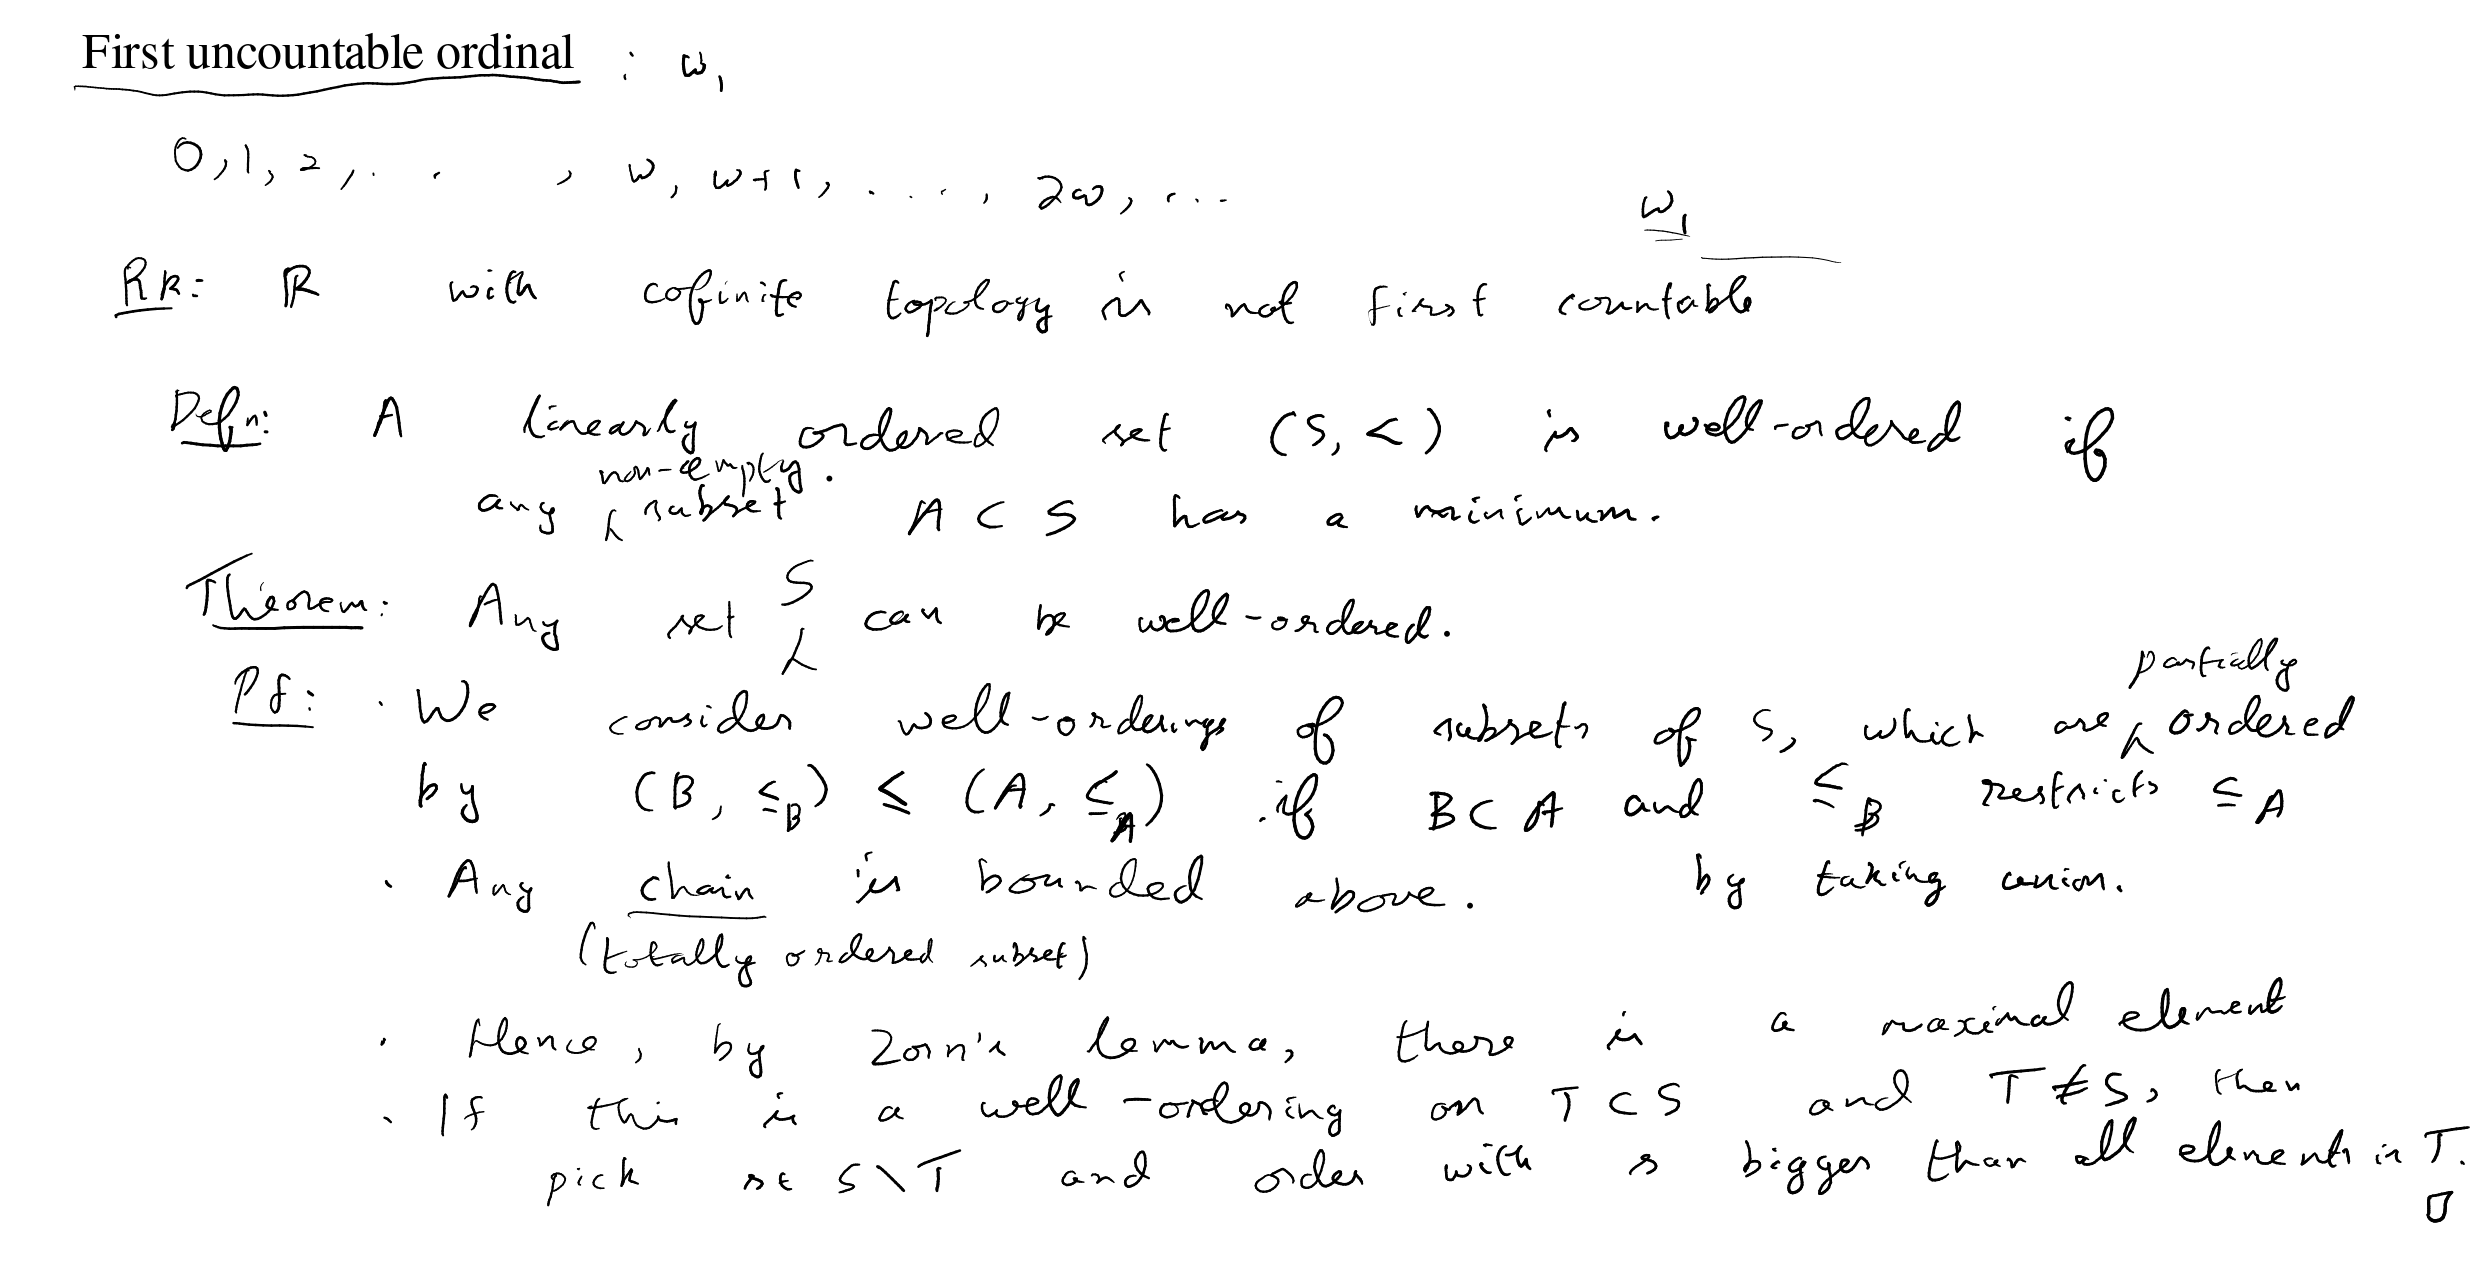 First uncountable ordinal : ω₁
0, 1, 2, . . , ω, ω+1, . . . ., 2ω, ... ω₁
Rk: ℝ with cofinite topology is not first countable
Defn: A linearly ordered set (S, <) is well-ordered if
any non-empty subset A ⊂ S has a minimum.
Theorem: Any set S can be well-ordered.
Pf: · We consider well-orderings of subsets of S, which are partially ordered
by (B, ≤_B) ≤ (A, ≤_A) if B ⊂ A and ≤_B restricts ≤_A
· Any chain is bounded above. by taking union.
(totally ordered subset)
· Hence, by Zorn's lemma, there is a maximal element
· If this is a well-ordering on T ⊂ S and T ≠ S, then
pick s ∈ S \ T and order with s bigger than all elements in T.
□